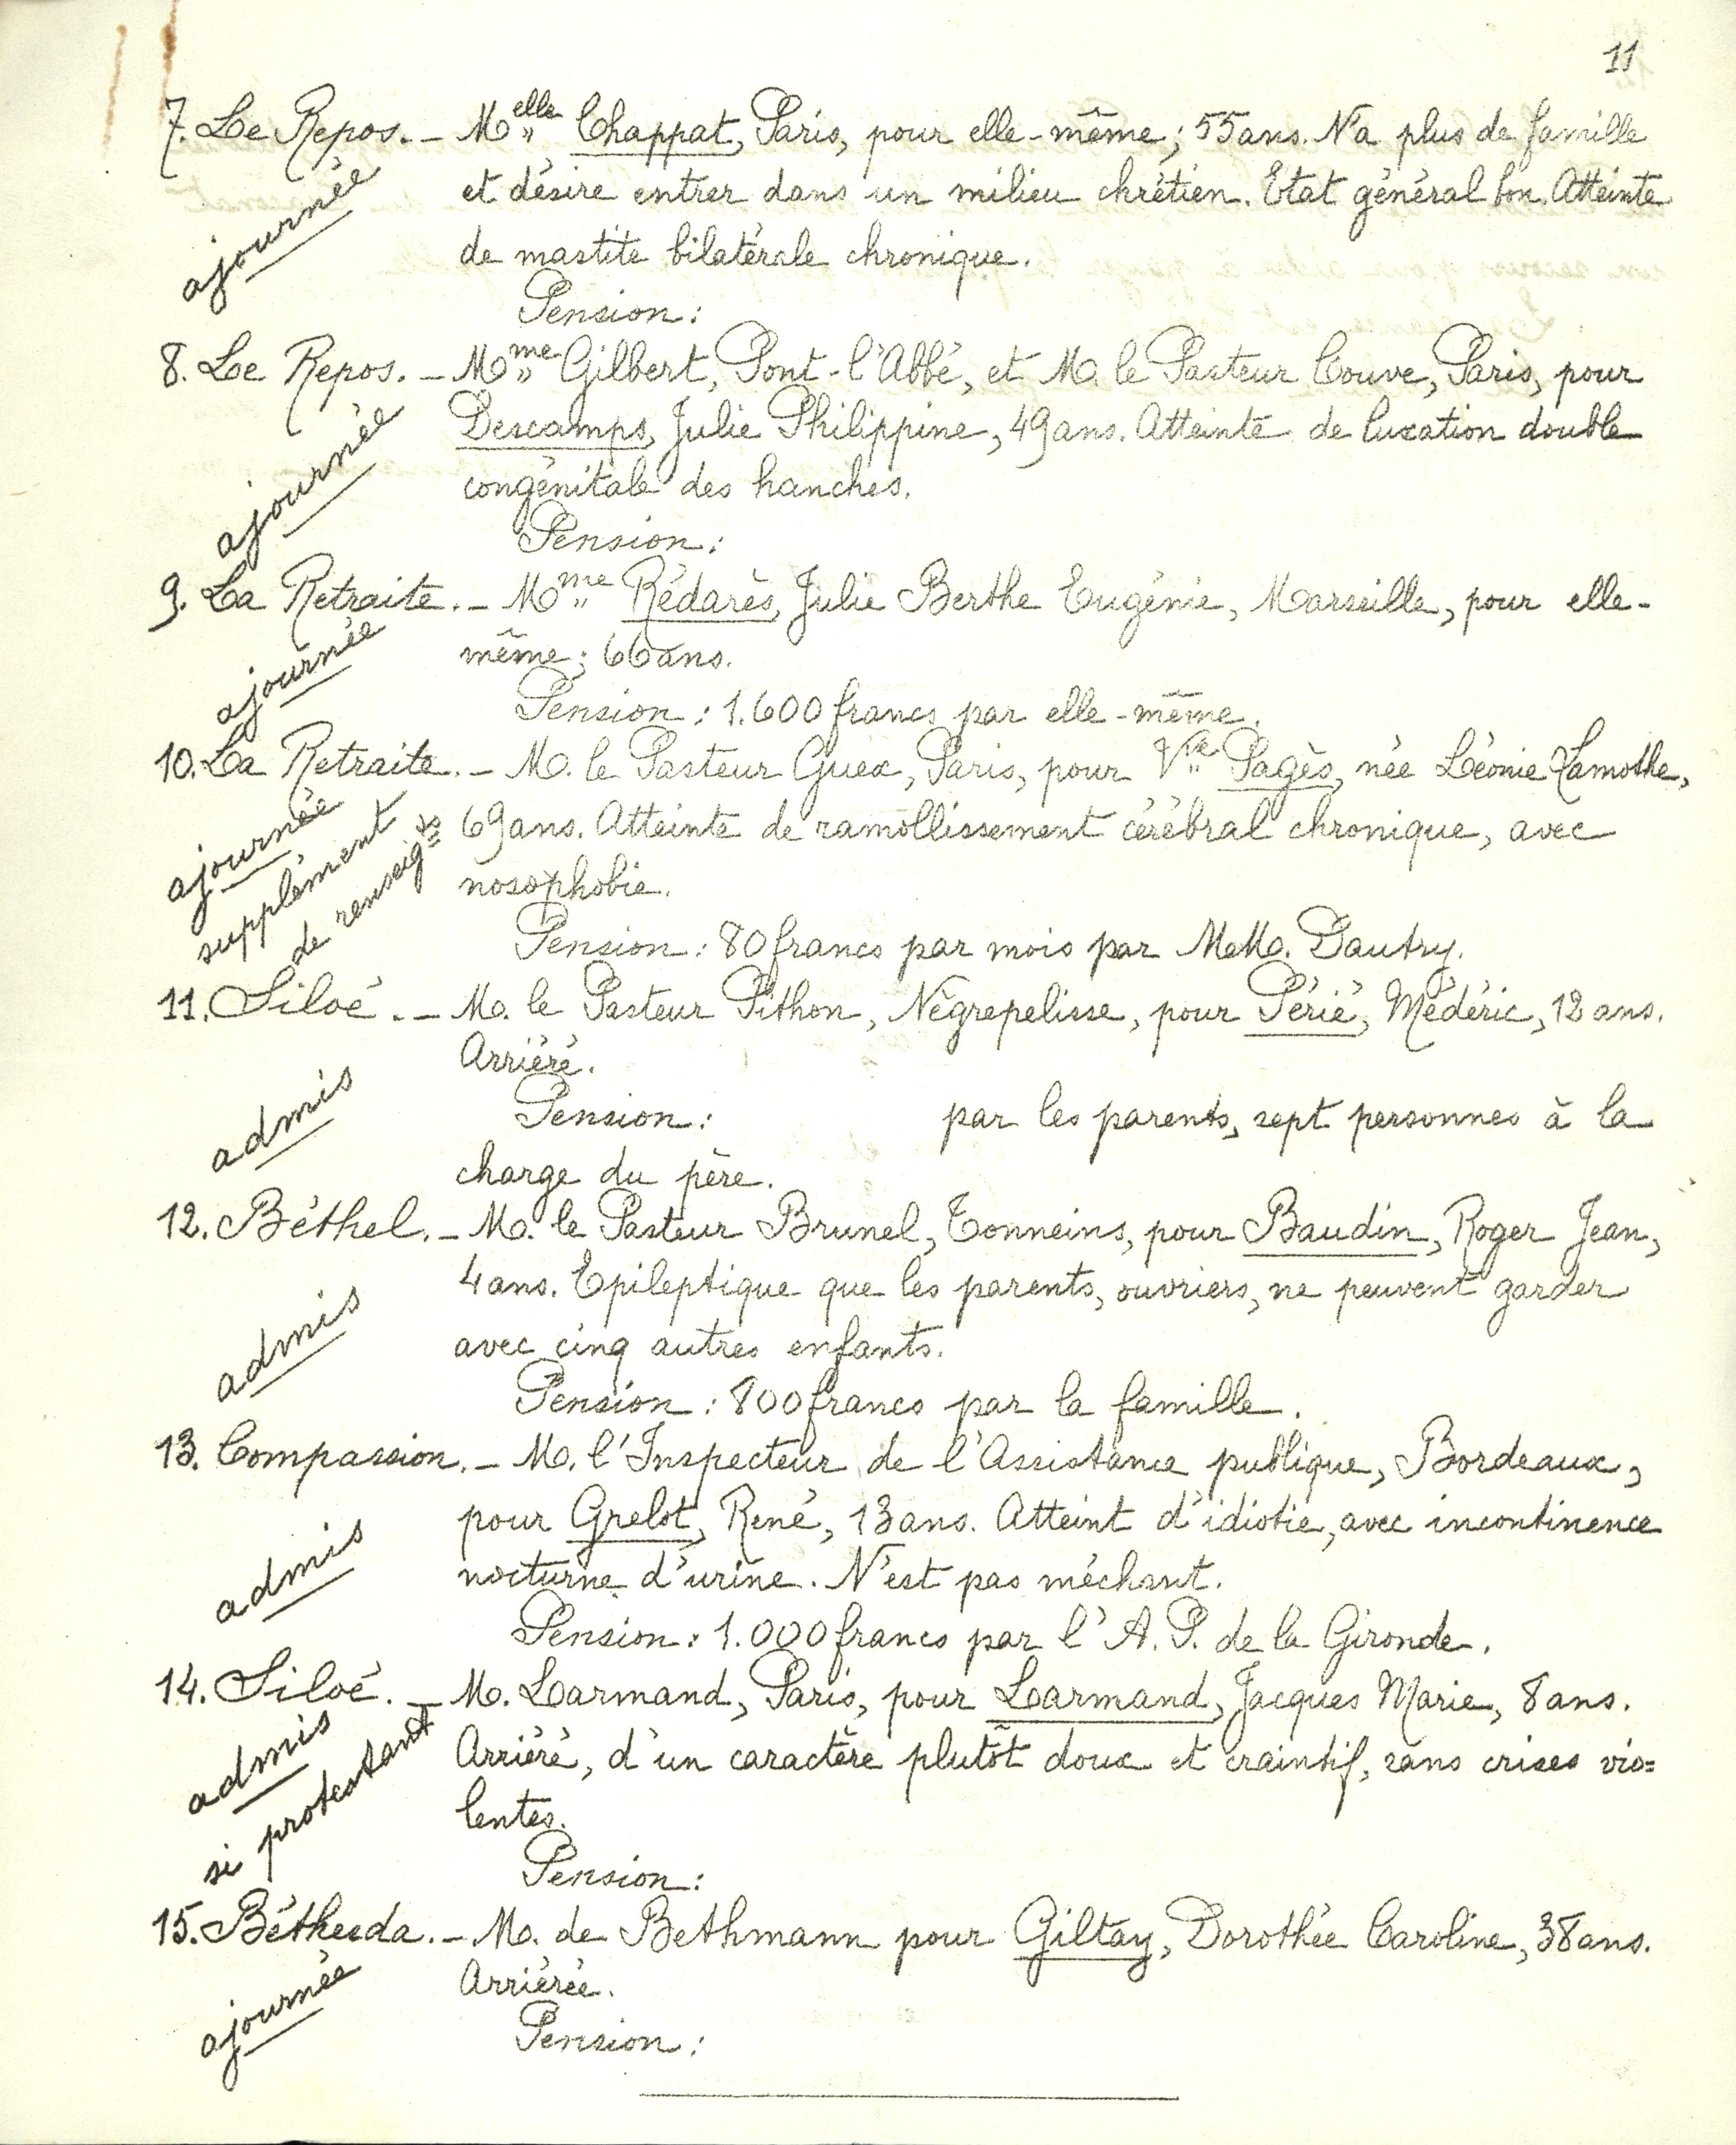 11
7. Le Repos. - Melle Chappat, Paris, pour elle-même; 55 ans. N'a plus de famille
ajournée
et désire entrer dans un milieu chrétien. Etat général bon. Atteinte
de mastite bilatérale chronique.
Pension :
8. Le Repos. - Mme Gilbert, Pont-l'Abbé, et M. le Pasteur Couve, Paris, pour
ajournée
Descamps, Julie Philippine, 49 ans. Atteinte de luxation double
congénitale des hanches.
Pension :
9. La Retraite. - Mme Rédarès, Julie Berthe Eugénie, Marseille, pour elle-
ajournée
même; 66 ans.
Pension : 1.600 francs par elle-même.
10. La Retraite. - M. le Pasteur Guex, Paris, pour Vve Pagès, née Léonie Lamothe,
ajournée
supplément
de renseigts
69 ans. Atteinte de ramollissement cérébral chronique, avec
nosophobie.
Pension : 80 francs par mois par MM. Dautry.
11. Siloé. - M. le Pasteur Pithon, Nègrepelisse, pour Périé, Médéric, 12 ans.
admis
Arriéré.
Pension : par les parents, sept personnes à la
charge du père.
12. Béthel. - M. le Pasteur Brunel, Tonneins, pour Baudin, Roger Jean,
admis
4 ans. Epileptique que les parents, ouvriers, ne peuvent garder
avec cinq autres enfants.
Pension : 800 francs par la famille.
13. Compassion. - M. l'Inspecteur de l'Assistance publique, Bordeaux,
admis
pour Grelot, René, 13 ans. Atteint d'idiotie, avec incontinence
nocturne d'urine. N'est pas méchant.
Pension : 1.000 francs par l'A. P. de la Gironde.
14. Siloé. - M. Larmand, Paris, pour Larmand, Jacques Marie, 8 ans.
admis
si protestant
Arriéré, d'un caractère plutôt doux et craintif, sans crises vio=
lentes.
Pension :
15. Béthesda. - M. de Bethmann pour Giltay, Dorothée Caroline, 38 ans.
ajournée
Arriérée.
Pension :